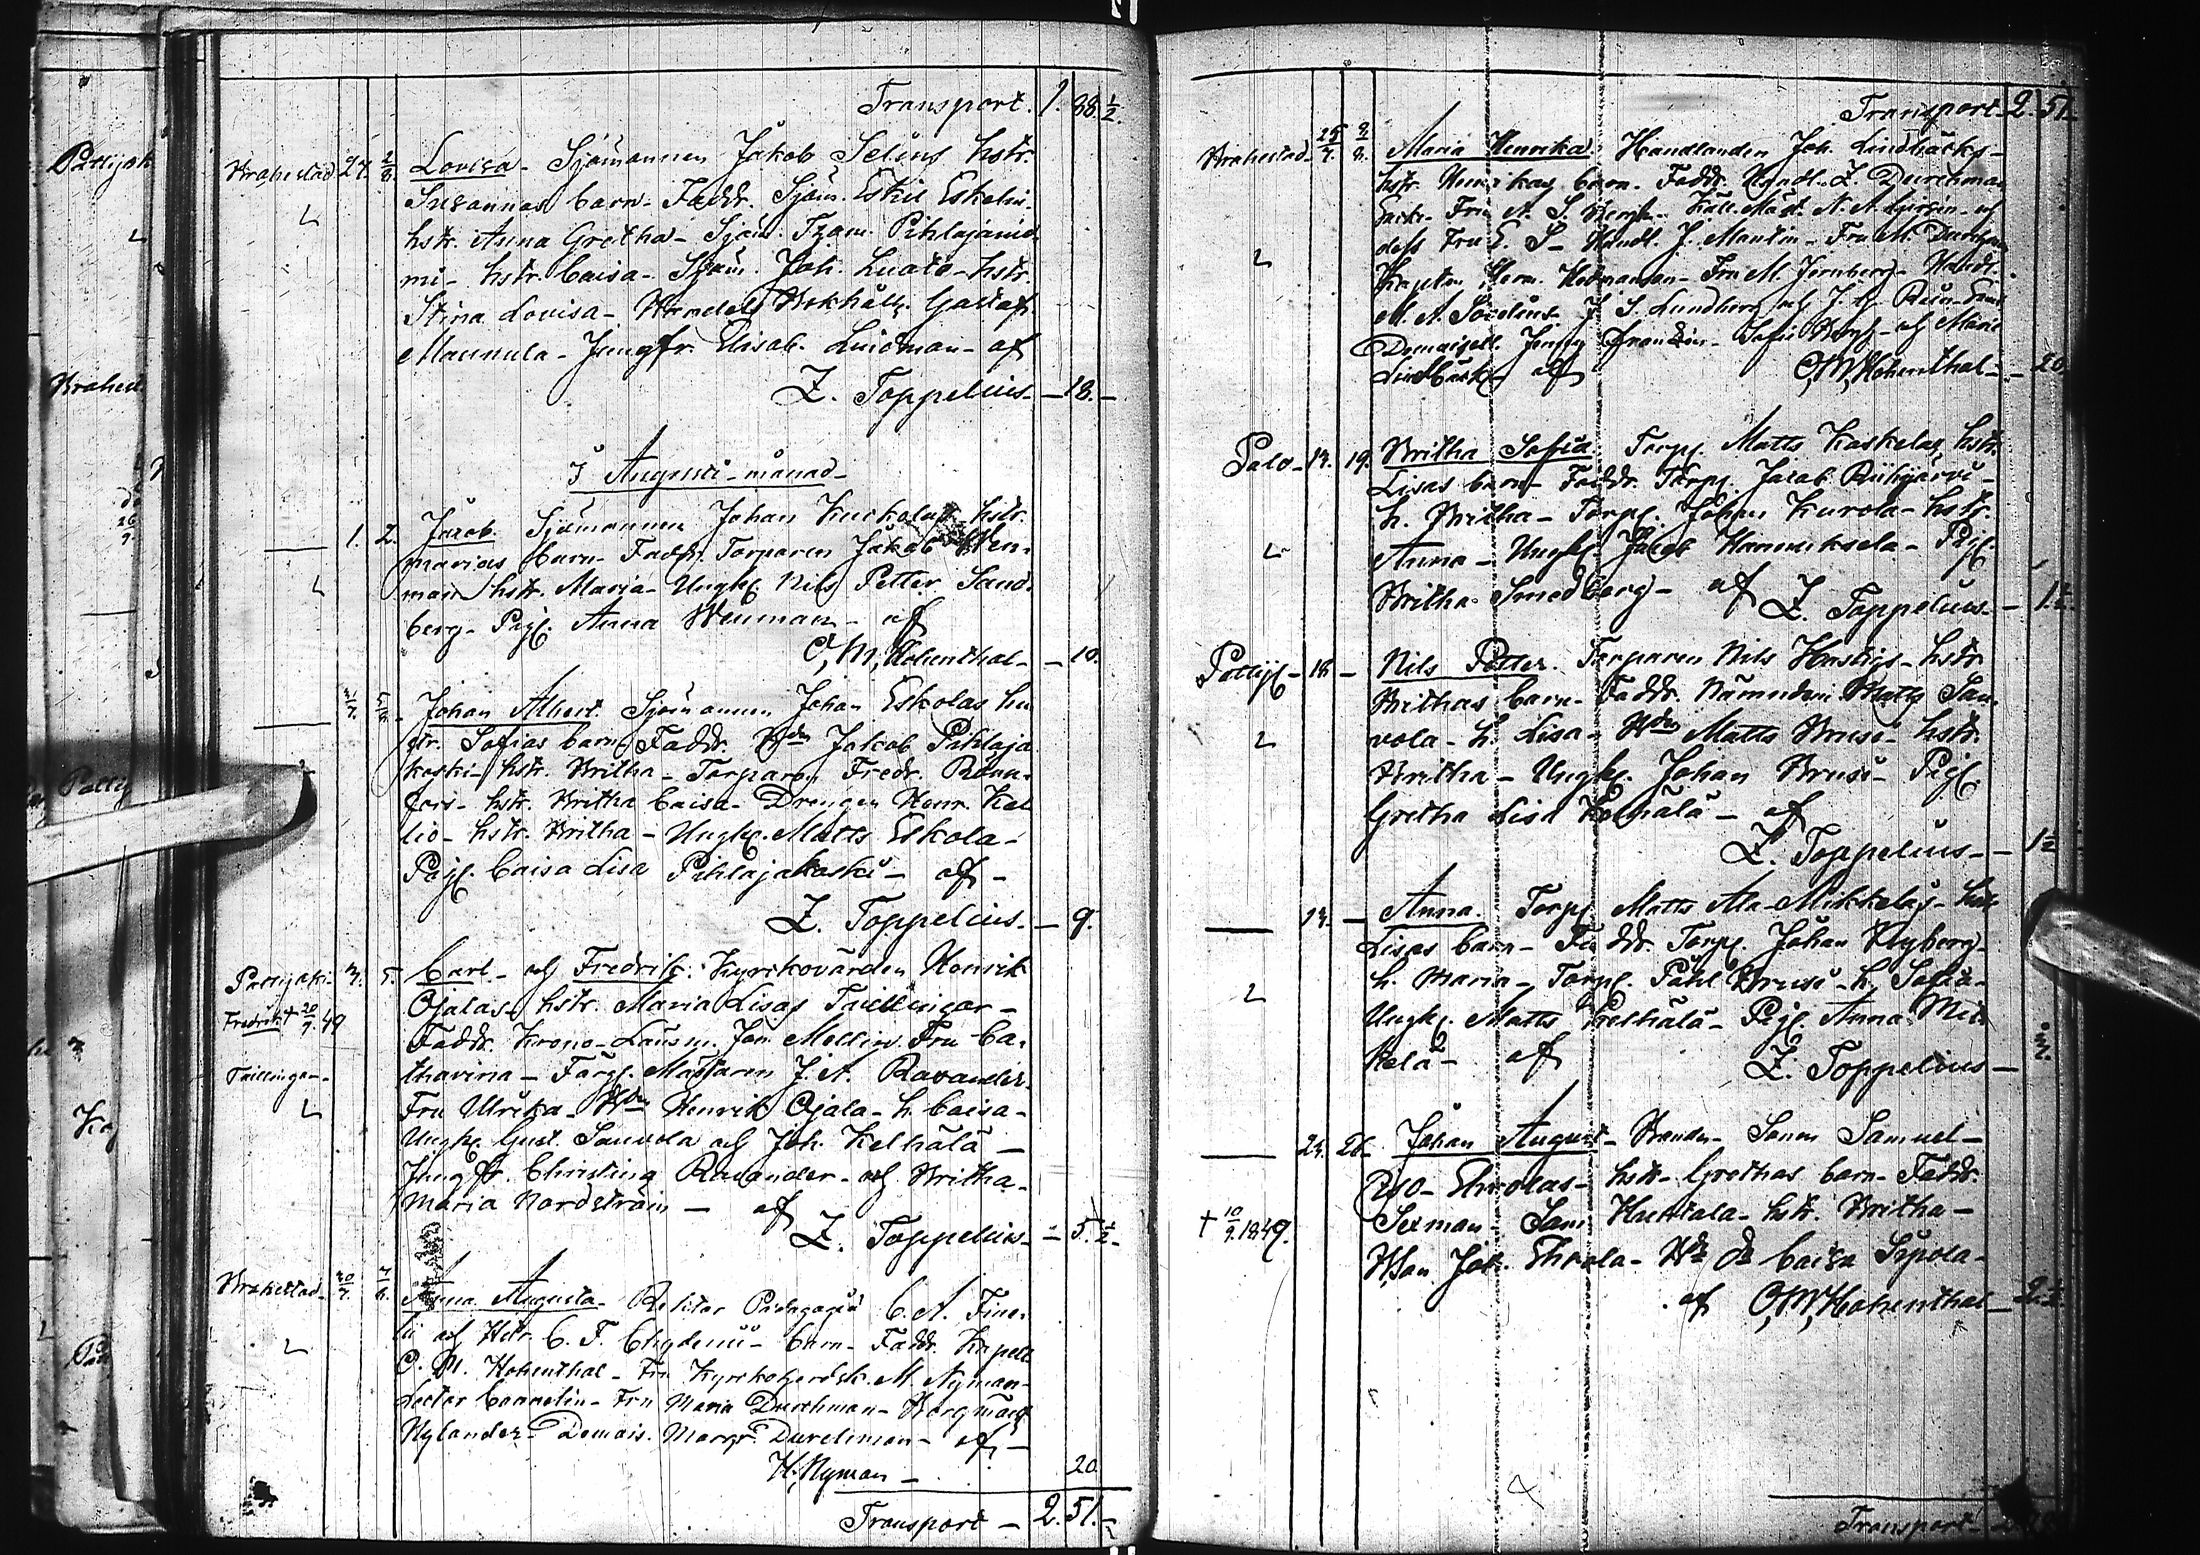 Transport. 1. 88. ½.
Brahestad 27. 2/8. Lovisa. Sjömannen Jakob Selins hstr.
Susannas barn. Faddr. Sjöm. Eskil Eskelin.
hstr. Anna Gretha - Sjöm. Pihlajanie-
mi - hstr. Caisa - Sjöm. Joh. Luoto - hstr.
Stina Lovisa - Handels Bokhåll. Gustaf
Mannula - Jungfr. Elisab. Lindman - af
Z. Toppelius. - 18. -
I Augusti månad -
1. 2. Jacob. Sjömannen Johan hstr.
Marias barn - Faddr. Torparen Jakob Wen-
man hstr. Maria - Ungk. Nils Petter Sand-
berg - Pig. Anna Wenman - af
O, M, Hohenthal - - 10.
31/7. 5/8. Johan Albert. Sjömannen Johan Eskolas hu-
str. Sofias barn Faddr. Bden Jakob Pihlaja
koski - hstr. Britha - Torparen Fredr. Rönn-
fors - hstr. Britha Caisa - Drengen Henr. Kal
lio - hstr. Britha - Ungk. Matts Eskola -
Pig. Caisa Lisa Pihlajakoski - af -
Z. Toppelius. - 9.
Pattijoki - 3. 5. Carl - och Fredrik. Kyrkovärden Henrik
Fredrik † 20/9. 49
Ojalas hstr. Maria Lisas Tvillingar -
Faddr. Krono-Länsm. Joh. Mellin. Fru Ca-
Tvillingar -
tharina - Färg. Mästaren J. A. Ravander.
Fru Ulrika - Bden Henrik Ojala - h. Caisa -
Ungk. Gust. Sauvola och Joh. Kelhälä -
Jungfr. Christina Ravander - och Britha -
Maria Nordström - af
Z. Toppelius. - 5. ½ -
Brahestad - 30/7. 7/8. Anna Augusta - Rektor Pædagogiæ C. A. Fine-
lii och Hstr. C. F. Chydenii - barn - Faddr. Kapell.
O. M. Hohenthal - Fru Kyrkoherdsk. M. Nyman -
Fru Maria Durchman - Borgmäst.
Nylander - Demois. Margr. Durchman - af -
H. Nyman -
20.
Transport - 2. 51. -
Transport - 2. 51.
Brahestad - 25/7. 9/8. Maria Henrika. Handlanden Joh. Lindbäcks -
hstr. Henrikas barn. Faddr. Handl. Z. Durchman
Fru A. S. Bergh - A.
dess Fru E. S. - Handl. J. Mantin - Fru M.
Kapten Herm. Hedmansson - Fru M. Jernberg - Handl.
M. A. Sovelius. J. S. Lundberg och J. G. Rein -
Demoisell. Jenny Franzén - Sofie Bergh - och Marie
Lindbäck - af O, M, Hohenthal - - 20.
Palo - 14. 19. Britha Sofia. Torp. Matts Koskelas hstr.
Lisas barn - Faddr. Torp. Jacob Riihijärvi -
h. Britha - Torp. Johan Kurola - hstr.
Anna - Ungk. Jacob Hannuksela - Pig.
Britha Smedberg - af Z. Toppelius. - 1 ½.
Pattij. - 18 - Nils Petter. Torparen Nils hstr
Brithas barn - Faddr. Nämndem. Matts Sau-
vola - h. Lisa - Bden Matts Bruse - hstr.
Britha - Ungk. Johan Bruse - Pig.
Gretha Lisa Kelhälä - af
Z. Toppelius - - 1 ½
14. - Anna. Torp. Matts Ala-Mikkeläs - hstr
Lisas barn - Faddr. Torp. Johan Nyberg -
h. Maria - Torp. Påhl Bruse - h. Sofia -
Ungk. Matts Kelhälä - Pig. Anna Mik-
kelä - af Z. Toppelius -
24. 26. Johan August - Bonden Sonen Samuel -
Iso - Ehrolas - hstr. Grethas barn - Faddr.
† 10/9. 1849. Sexman Sam Huttala - hstr. Britha -
Bson Joh. Ehrola - Caisa Sipola -
af O, M, Hohenthal - 2. ½.
Transport -